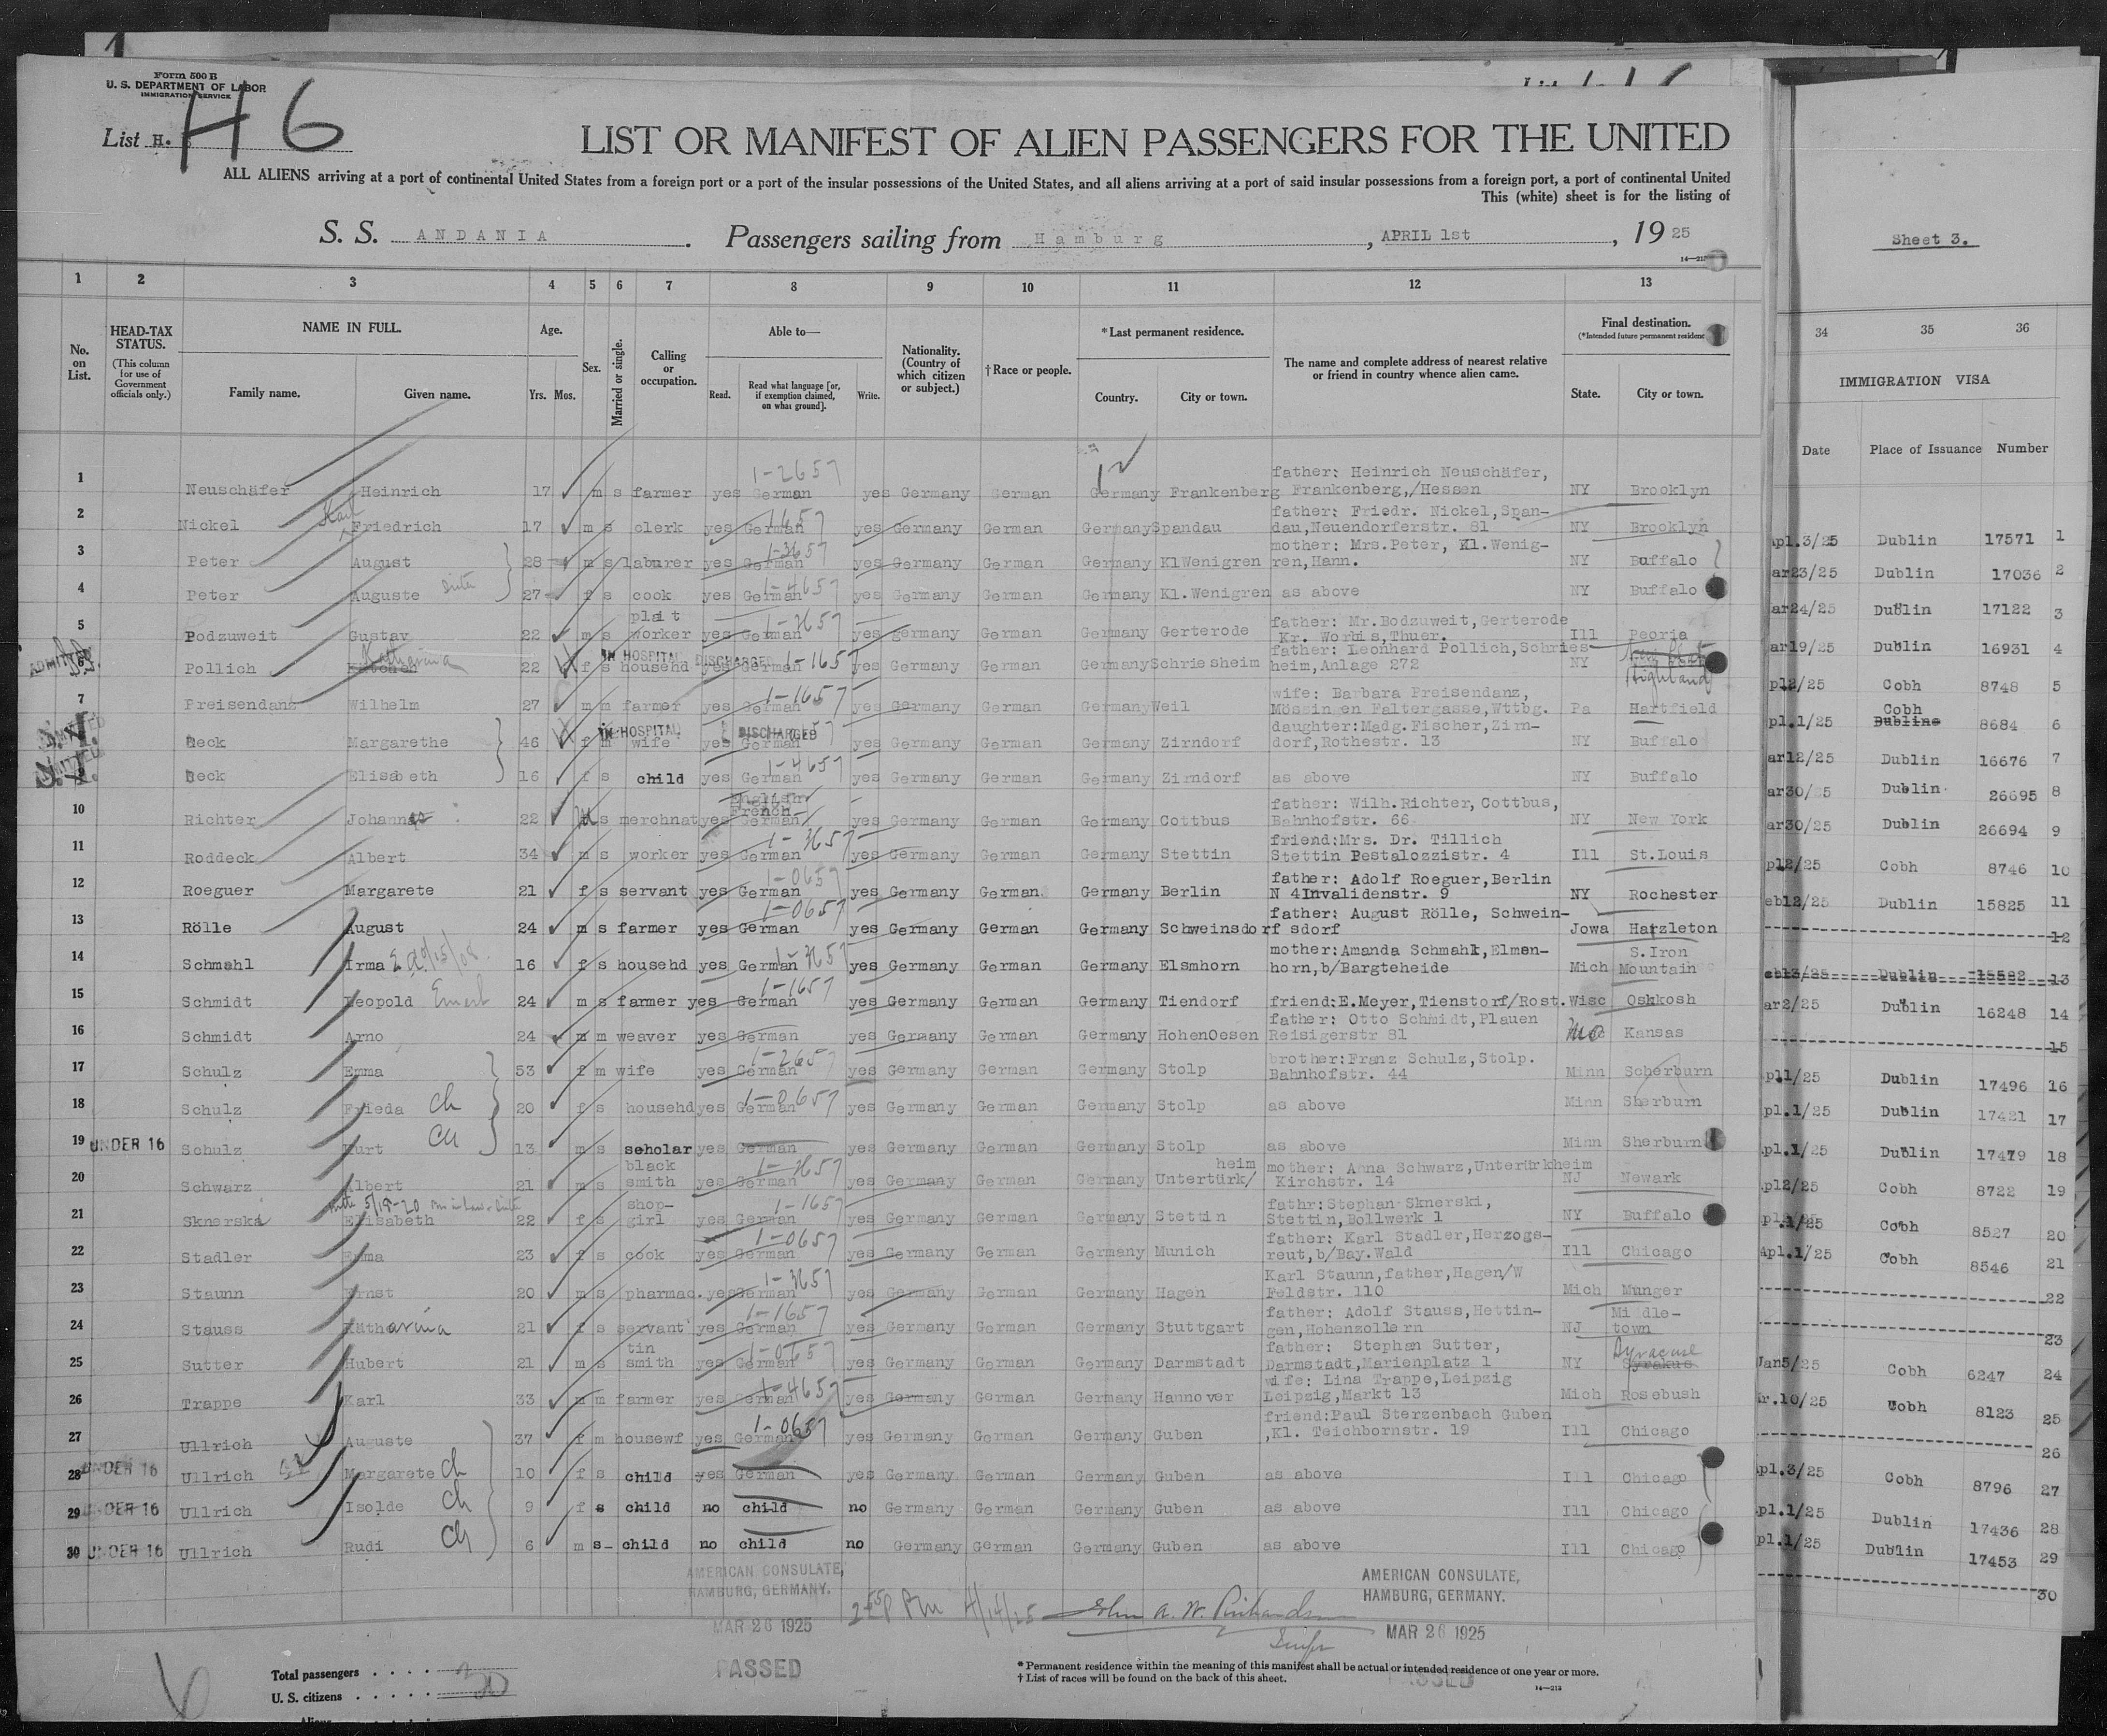 Form 500 B
U. S. DEPARTMENT OF LABOR
IMMIGRATION SERVICE
List H. H 6
LIST OR MANIFEST OF ALIEN PASSENGERS FOR THE UNITED
ALL ALIENS arriving at a port of continental United States from a foreign port or a port of the insular possessions of the United States, and all aliens arriving at a port of said insular possessions from a foreign port, a port of continental United
This (white) sheet is for the listing of
S. S. ANDANIA. Passengers sailing from Hamburg, APRIL 1st, 1925
1 2 3 4 5 6 7 8 9 10 11 12 13
No. on List. HEAD-TAX STATUS. (This column for use of Government officials only.) NAME IN FULL. Family name. Given name. Age. Yrs. Mos. Sex. Married or single. Calling or occupation. Able to— Read. Read what language [or, if exemption claimed, on what ground]. Write. Nationality. (Country of which citizen or subject.) † Race or people. *Last permanent residence. Country. City or town. The name and complete address of nearest relative or friend in country whence alien came. Final destination. (*Intended future permanent residence State. City or town.
1 Neuschäfer Heinrich 17 m s farmer yes German 1-2657 yes Germany German Germany Frankenberg father: Heinrich Neuschäfer, Frankenberg,/Hessen NY Brooklyn
2 Nickel Karl Friedrich 17 m s clerk yes German yes Germany German Germany Spandau father: Friedr. Nickel, Spandau, Neuendorferstr. 81 NY Brooklyn
3 Peter August 28 m s laburer yes German 1-3657 yes Germany German Germany KlWenigren mother: Mrs.Peter, Kl.Wenigren,Hann. NY Buffalo
4 Peter Auguste sister 27 f s cook yes German 1-4657 yes Germany German Germany Kl.Wenigren as above NY Buffalo
5 Podzuweit Gustav 22 m s plait worker yes German 1-3657 yes germany German Germany Gerterode father: Mr.Bodzuweit,Gerterode Kr. Worbis,Thuer. Ill Peoria
6 ADMITTED Pollich Katharina 22 f s househd IN HOSPITAL DISCHARGED yes German 1-1657 yes Germany German Germany Schriesheim father: Leonhard Pollich,Schriesheim,Anlage 272 NY Highland
7 Preisendanz Wilhelm 27 m m farmer yes German 1-1657 yes Germany German Germany Weil wife: Barbara Preisendanz, Mössingen Faltergasse,Wttbg. Pa Hartfield
8 ADMITTED S.I. Beck Margarethe 46 f m wife IN HOSPITAL DISCHARGED yes German yes Germany German Germany Zirndorf daughter:Madg.Fischer,Zirndorf,Rothestr. 13 NY Buffalo
9 ADMITTED S.I. Beck Elisabeth 16 f s child yes German 1-4657 yes Germany German Germany Zirndorf as above NY Buffalo
10 Richter Johann 22 m s merchnat yes English French German yes Germany German Germany Cottbus father: Wilh.Richter,Cottbus, Bahnhofstr. 66 NY New York
11 Roddeck Albert 34 m s worker yes German 1-3657 yes Germany German Germany Stettin friend:Mrs. Dr. Tillich Stettin Pestalozzistr. 4 Ill St.Louis
12 Roeguer Margarete 21 f s servant yes German 1-0657 yes Germany German Germany Berlin father: Adolf Roeguer,Berlin N 4Invalidenstr. 9 NY Rochester
13 Rölle August 24 m s farmer yes German 1-0657 yes Germany German Germany Schweinsdorf father: August Rölle, Schweinsdorf Jowa Hatzleton
14 Schmahl Irma 16 f s househd yes German 1-3657 yes Germany German Germany Elsmhorn mother:Amanda Schmahl,Elmenhorn,b/Bargteheide Mich S.Iron Mountain
15 Schmidt Leopold Ernest 24 m s farmer yes German 1-1657 yes Germany German Germany Tiendorf friend:E.Meyer,Tienstorf/Rost. Wisc Oshkosh
16 Schmidt Arno 24 m m weaver yes German yes Germany German Germany HohenOesen father: Otto Schmidt,Plauen Reisigerstr 81 Mo Kansas
17 Schulz Emma 53 f m wife yes German 1-2657 yes Germany German Germany Stolp brother:Franz Schulz,Stolp. Bahnhofstr. 44 Minn Scherburn
18 Schulz Frieda ch 20 f s househd yes German 1-0657 yes Germany German Germany Stolp as above Minn Sherburn
19 UNDER 16 Schulz Kurt ch 13 m s scholar yes German yes Germany German Germany Stolp as above Minn Sherburn
20 Schwarz Albert 21 m s black smith yes German 1-3657 yes Germany German Germany Untertürk/heim mother: Anna Schwarz,Untertürkheim Kirchstr. 14 NJ Newark
21 Sknerski Elisabeth 22 f s shop-girl yes German 1-1657 yes Germany German Germany Stettin fathr:Stephan Sknerski, Stettin,Bollwerk 1 NY Buffalo
22 Stadler Emma 23 f s cook yes German 1-0657 yes Germany German Germany Munich father: Karl Stadler,Herzogsreut,b/Bay.Wald Ill Chicago
23 Staunn Ernst 20 m s pharmac. yes German 1-3657 yes Germany German Germany Hagen Karl Staunn,father,Hagen/W Feldstr. 110 Mich Munger
24 Stauss Katharina 21 f s servant yes German 1-1657 yes Germany German Germany Stuttgart father: Adolf Stauss,Hettingen,Hohenzollern NJ Middletown
25 Sutter Hubert 21 m s tin smith yes German 1-0657 yes Germany German Germany Darmstadt father: Stephan Sutter, Darmstadt,Marienplatz 1 NY Syrakus Syracuse
26 Trappe Karl 33 m m farmer yes German 1-4657 yes Germany German Germany Hannover wife: Lina Trappe,Leipzig Leipzig,Markt 13 Mich Rosebush
27 Ullrich Auguste 37 f m housewf yes German 1-0657 yes Germany German Germany Guben friend:Paul Sterzenbach Guben ,Kl. Teichbornstr. 19 Ill Chicago
28 UNDER 16 Ullrich Margarete ch 10 f s child yes German yes Germany German Germany Guben as above Ill Chicago
29 UNDER 16 Ullrich Isolde ch 9 f s child no child no Germany German Germany Guben as above Ill Chicago
30 UNDER 16 Ullrich Rudi ch 6 m s child no child no Germany German Germany Guben as above Ill Chicago
AMERICAN CONSULATE, HAMBURG, GERMANY.
MAR 26 1925
PASSED
2 55 PM 4/14/25 John A. W. Richardson
AMERICAN CONSULATE, HAMBURG, GERMANY.
MAR 26 1925
PASSED
Total passengers
U. S. citizens
* Permanent residence within the meaning of this manifest shall be actual or intended residence of one year or more.
† List of races will be found on the back of this sheet.
14—213
Sheet 3.
34 35 36
IMMIGRATION VISA
Date Place of Issuance Number
Apl.3/25 Dublin 17571 1
ar23/25 Dublin 17036 2
ar24/25 Dublin 17122 3
ar19/25 Dublin 16931 4
pl2/25 Cobh 8748 5
pl.1/25 Cobh Dublin 8684 6
ar12/25 Dublin 16676 7
ar30/25 Dublin 26695 8
ar30/25 Dublin 26694 9
pl2/25 Cobh 8746 10
eb12/25 Dublin 15825 11
12
eb13/25 Dublin 13
ar2/25 Dublin 16248 14
15
pl1/25 Dublin 17496 16
pl.1/25 Dublin 17421 17
Apl.1/25 Dublin 17479 18
Apl2/25 Cobh 8722 19
1/25 Cobh 8527 20
Apl.1/25 Cobh 8546 21
22
23
Jan5/25 Cobh 6247 24
r.10/25 Cobh 8123 25
26
pl.3/25 Cobh 8796 27
pl.1/25 Dublin 17436 28
pl.1/25 Dublin 17453 29
30